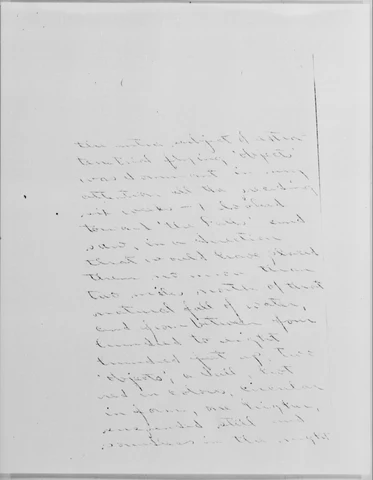 the entire subject of extra-
terrestrial flying 'objects'
was dormant in my
attention till the reading
and
toward 'the falls' and
saw, in a direction
that would have placed
them not more than
two miles south of that
natural fall of water,
and from between four
hundred to eight
hundred feet up, two
'objects', a dull, hot
red in colour, circular
in form, one higher,
suspended still and
soundless in the night